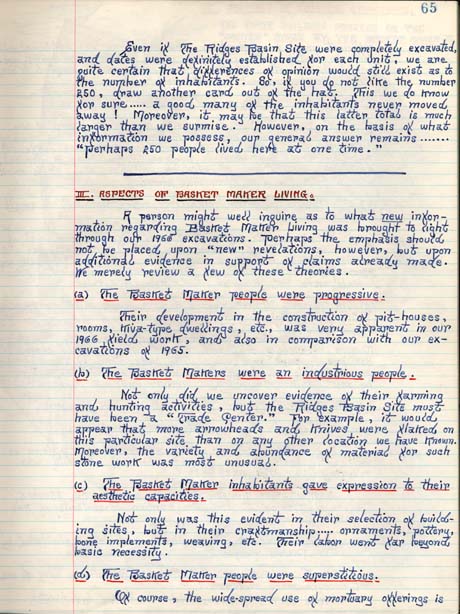 65
Even if the Ridges Basin Site were completely excavated,
and dates were definitely established for each unit, we are
quite certain that differences of opinion would still exist as to
the number of inhabitants. So, if you do not like the number
250, draw another card out of the hat. This we do know
for sure..... a good many of the inhabitants never moved
away! Moreover, it may be that this latter total is much
larger than we surmise. However, on the basis of what
information we possess, our general answer remains.......
"Perhaps 250 people lived here at one time."
III. ASPECTS OF BASKET MAKER LIVING.
A person might well inquire as to what new infor-
mation regarding Basket Maker Living was brought to light
through our 1966 excavations. Perhaps the emphasis should
not be placed upon "new" revelations, however, but upon
additional evidence in support of claims already made.
We merely review a few of these theories.
(a) The Basket Maker people were progressive.
Their development in the construction of pit-houses,
rooms, Kiva-type dwellings, etc., was very apparent in our
1966 field work, and also in comparison with our ex-
cavations of 1965.
(b) The Basket Makers were an industrious people.
Not only did we uncover evidence of their farming
and hunting activities, but the Ridges Basin Site must
have been a "Trade Center." For example, it would
appear that more arrowheads and knives were flaked on
this particular site than on any other location we have known.
Moreover, the variety and abundance of material for such
stone work was most unusual.
(c) The Basket Maker inhabitants gave expression to their
aesthetic capacities.
Not only was this evident in their selection of build-
ing sites, but in their craftmanship.... ornaments, pottery,
bone implements, weaving, etc. Their labor went far beyond
basic necessity.
(d) The Basket Maker people were superstitious.
Of course, the wide-spread use of mortuary offerings is